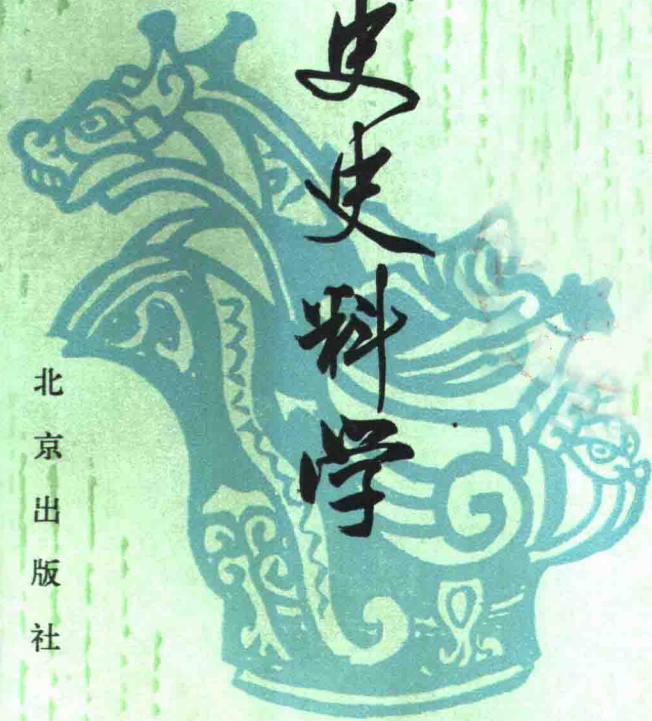 史史料学
北京出版社